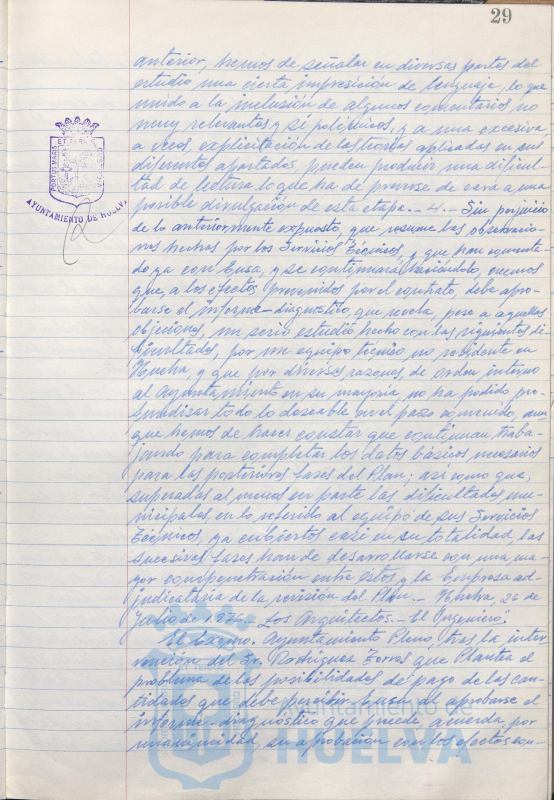 29
anterior, hemos de señalar en diversas partes del
estudio una cierta impresición de lenguaje, lo que
unido a la inclusión de algunos comentarios no
muy relevantes y sí polémicos, y a una excesiva
a veces, explicitación de las teorías aplicadas en sus
diferentes apartados, pueden producir una dificul-
tad de lectura lo que ha de preverse de cara a una
posible divulgación de esta etapa.- 4.- Sin perjuicio
de lo anteriormente expuesto, que resume las observacio-
nes hechas por los Servicios Técnicos, y que han comenta-
do ya con Eusa, y se continuará haciéndolo, creemos
que, a los efectos prevenidos por el contrato, debe apro-
barse el informe-diagnóstico que revela, pese a aquellas
objeciones, un serio estudio hecho con las siguientes di-
ficultades, por un equipo técnico no residente en
Huelva y que por diversas razones, de orden interno
al Ayuntamiento en su mayoría, no ha podido pro-
fundizar todo lo deseable en el plazo convenido, aun
que hemos de hacer constar que continuan traba-
jando para completar los datos básicos necesarios
para las posteriores fases del Plan; así como que,
superadas al menos en parte las dificultades mu-
nicipales, en lo referido al equipo de sus Servicios
Técnicos, ya cubiertos casi en su totalidad, las
sucesivas fases han de desarrollarse con una ma-
yor compenetración entre éstos y la Empresa ad-
judicataria de la revisión del Plan.- Huelva, 26 de
Julio de 1.976.- Los Arquitectos.- El Ingeniero".
El Excmo. Ayuntamiento Pleno, tras la inter-
vención del Sr. Rodríguez Torres que plantea el
problema de las posibilidades de pago de las can-
tidades que debe percibir Eusa al aprobarse el
informe-diagnóstico que precede, acuerda, por
unanimidad, su aprobación con los efectos con-
AYUNTAMIENTO DE HUELVA
Ayuntamiento de
HUELVA